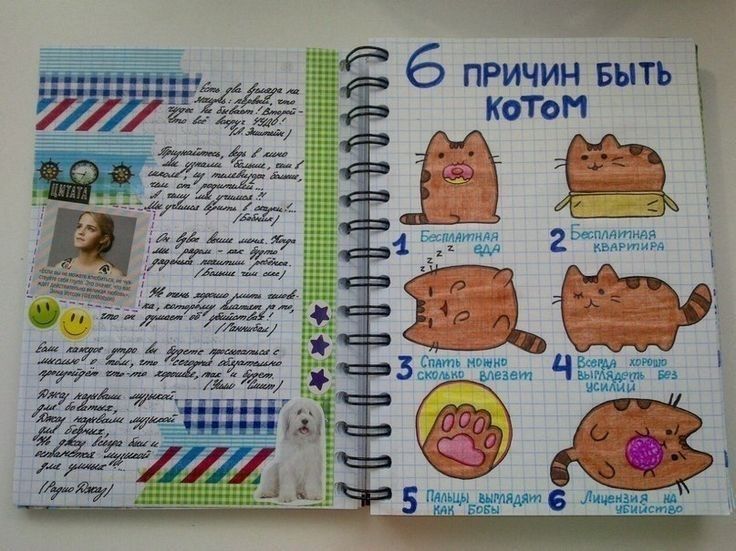 Есть два взгляда на
жизнь: первый, что
чудес не бывает! Второй-
что всё вокруг ЧУДО!
(А. Эйнштейн)
Признайтесь, ведь в кино
мы узнали больше, чем в
школе, из телевизора больше,
чем от родителей...
А чему мы учимся?!
Мы учимся верить в сказки!...
ЦИТАТА
Он вдвое выше меня. Когда
мы рядом - как будто
похитил ребёнка.
(Больше чем секс)
«Если вы не можете влюбиться, не чув-
Не очень хорошо злить челове-
ка, которому платят за то,
что он думает об убийствах!
(Ганнибал)
Если каждое утро вы будете просыпаться с
мыслью о том, что сегодня обязательно
произойдёт что-то хорошее, так и будет.
(Уилл Смит)
Джаз называли музыкой
для богатых,
Джаз называли музыкой
для бедных,
Но джаз всегда был и
останется музыкой
для умных"...
(Радио Джаз)
6 ПРИЧИН БЫТЬ
КОТОМ
1 Бесплатная
еда
2 Бесплатная
квартира
3 Спать можно
сколько влезет
4 Всегда хорошо
выглядеть без
усилий
5 Пальцы выглядят
как бобы
6 Лицензия на
убийство